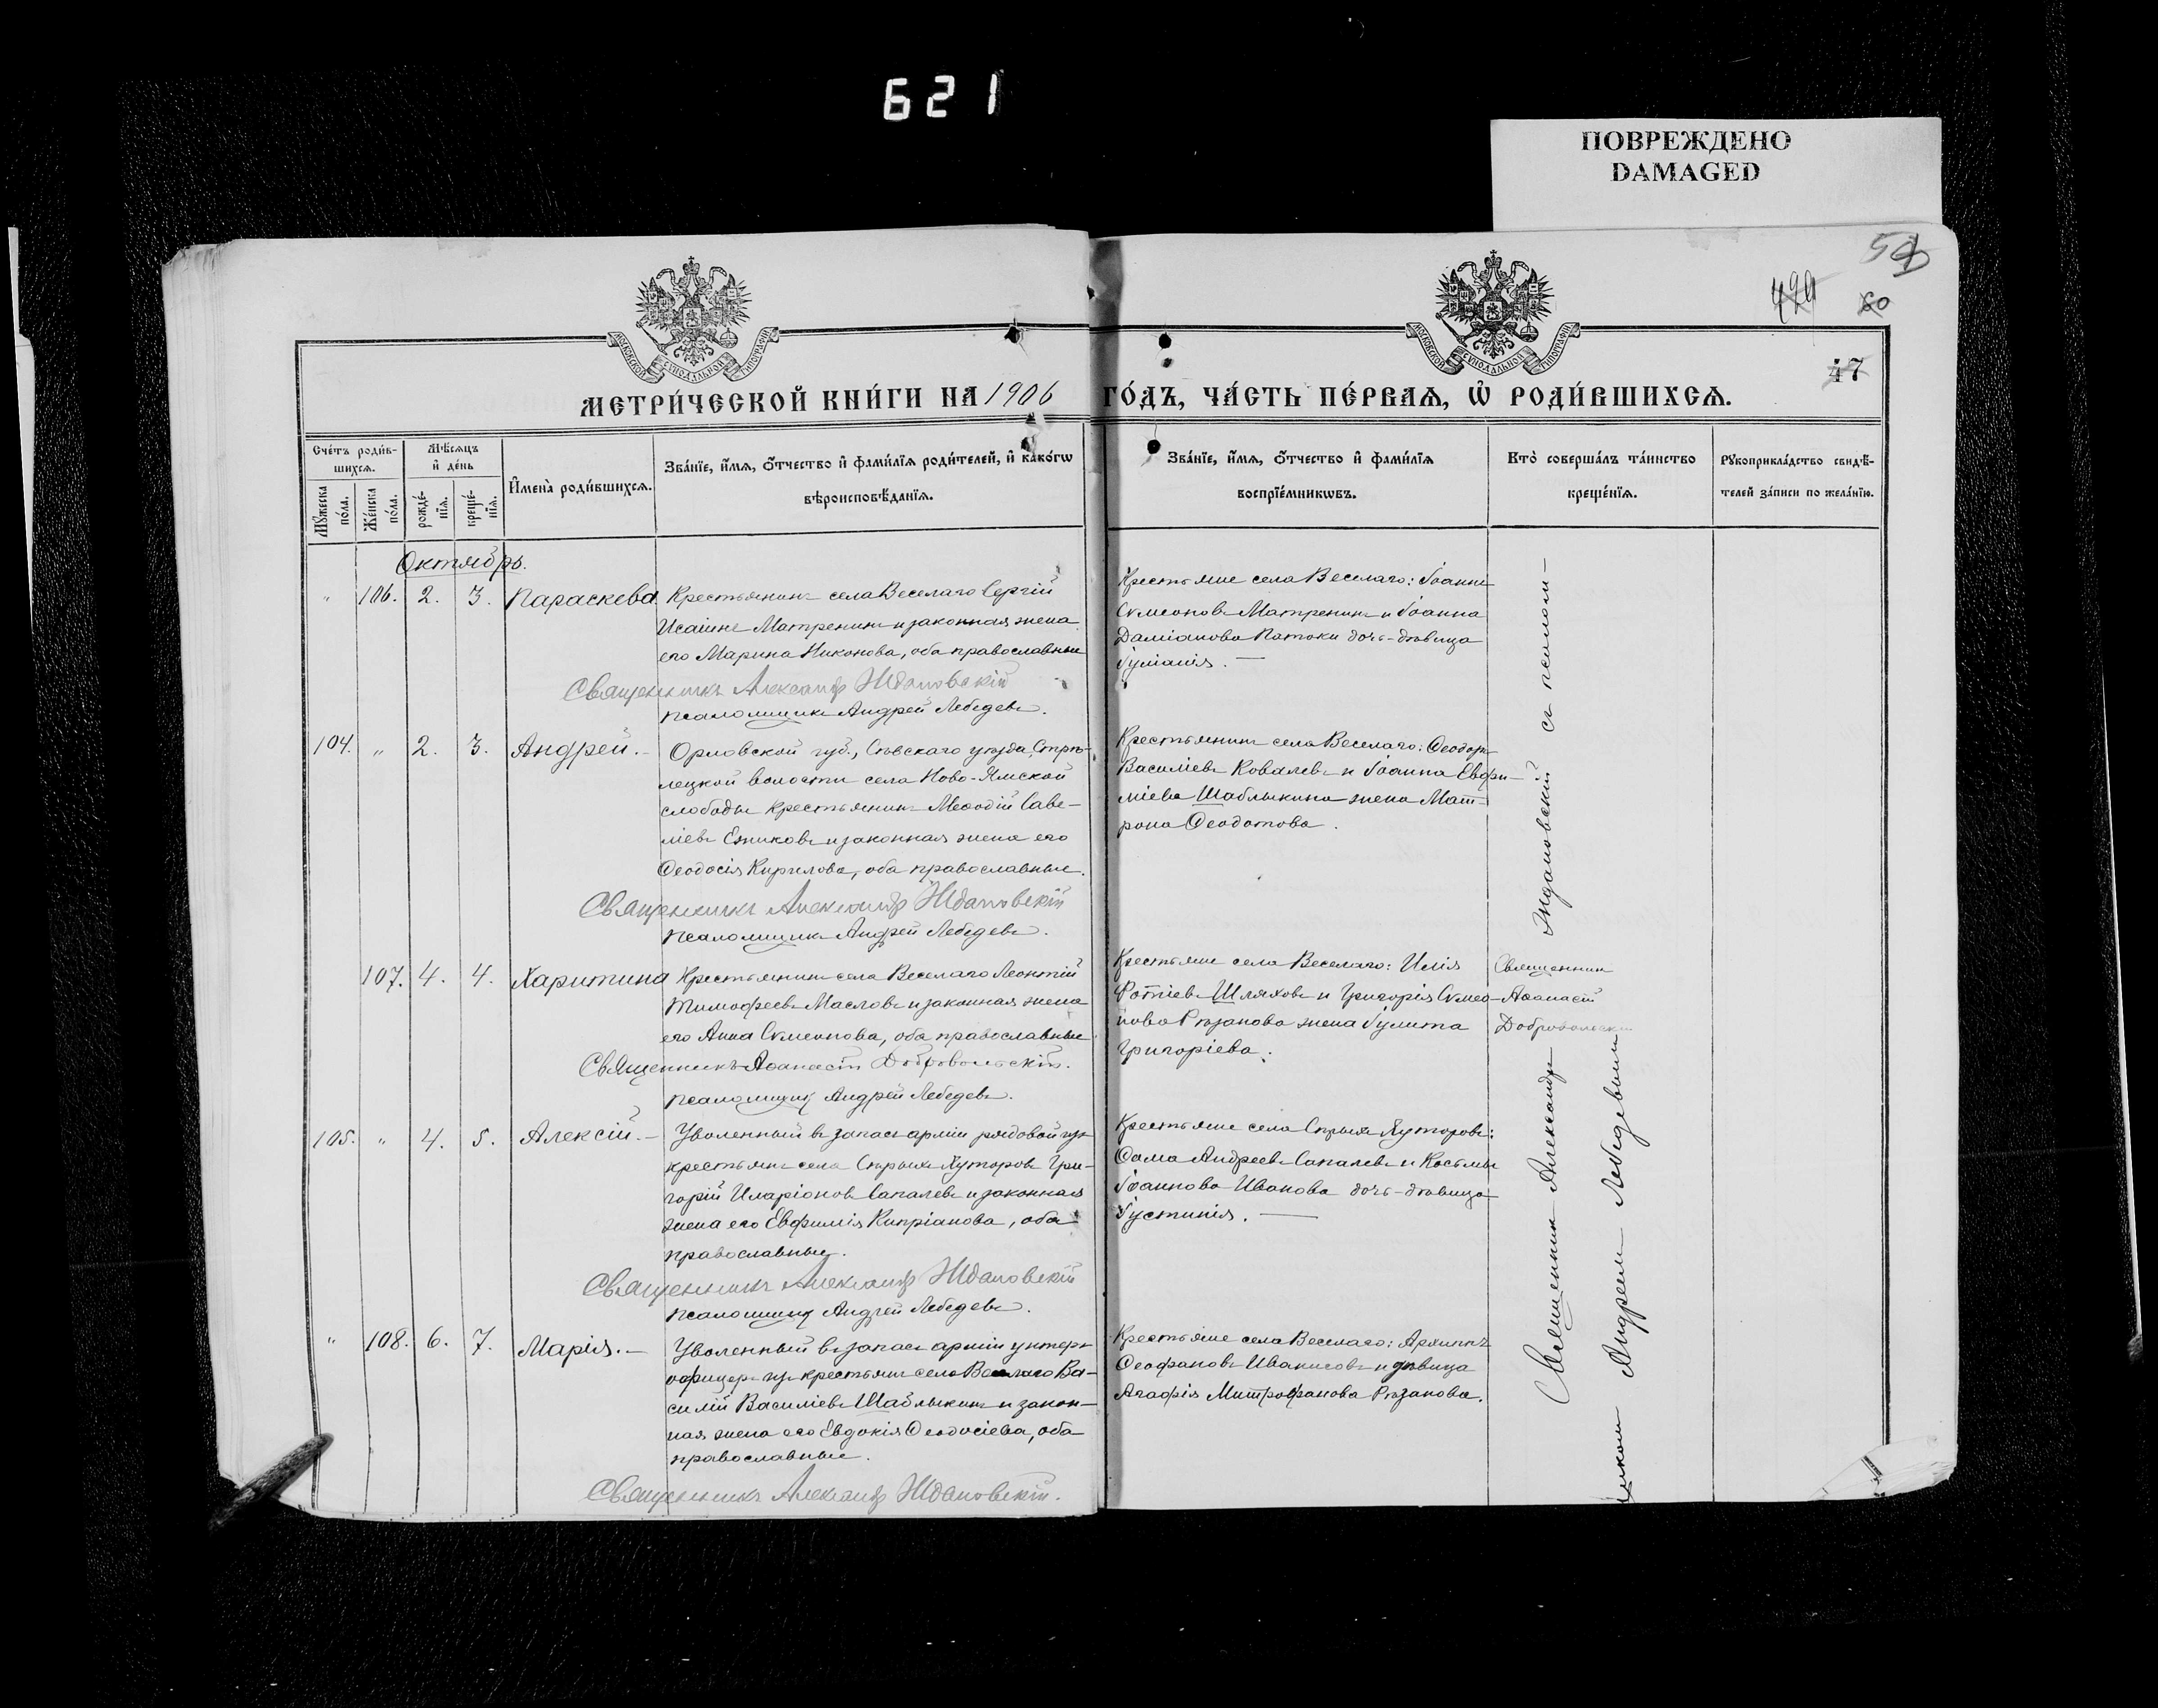 621
ПОВРЕЖДЕНО
DAMAGED
60
47
МОСКОВСКОЙ СѴНОДАЛЬНОЙ ТИПОГРАФІИ
МОСКОВСКОЙ СѴНОДАЛЬНОЙ ТИПОГРАФІИ
МЕТРИ́ЧЕСКОЙ КНИ́ГИ НА 1906 ГО́ДЪ, ЧА́СТЬ ПЕ́РВАѦ, Ѡ҆ РОДИ́ВШИХСѦ.
Сче́тъ роди́в-
шихсѧ.
Мꙋ́жеска по́ла.
Же́нска по́ла.
Мѣ́сѧцъ
и҆ де́нь
рожде́-
нїѧ.
креще́-
нїѧ.
И҆мена̀ роди́вшихсѧ.
Зва́нїе, и҆́мѧ, ѻ҆́тчество и҆ фами́лїѧ роди́телей, и҆ како́гѡ
вѣроисповѣ́данїѧ.
Зва́нїе, и҆́мѧ, ѻ҆́тчество и҆ фами́лїѧ
воспрїе́мникѡвъ.
Кто̀ соверша́лъ та́инство
креще́нїѧ.
Рꙋкоприкла́дство свидѣ́-
телей за́писи по жела́нїю.
Октябрь.
" 106. 2. 3. Параскева
Крестьянинъ села Веселаго Сергій
Исаіинъ Матренинъ и законная жена
его Марина Никонова, оба православные
Священникъ Александр Ждановскій
Псаломщикъ Андрей Лебедевъ.
Крестьяне села Веселаго: Іоаннъ
Сѵмеоновъ Матренинъ и Іоанна
Даміанова Патоки дочь-дѣвица
Іуліанія. —
104. " 2. 3. Андрей. —
Орловской губ., Сѣвскаго уѣзда, Стрѣ-
лецкой волости села Ново-Ямской
слободы крестьянинъ Меѳодій Саве-
ліевъ Ежиковъ и законная жена его
Ѳеодосія Кирилова, оба православные.
Священникъ Александр Ждановскій
Псаломщикъ Андрей Лебедевъ.
Крестьянинъ села Веселаго: Ѳеодоръ
Василіевъ Ковалевъ и Іоанна Евфи-
міева Шаблыкина жена Мат-
рона Ѳеодотова.
107. 4. 4. Харитина
Крестьянинъ села Веселаго Леонтій
Тимофеевъ Масловъ и законная жена
его Анна Сѵмеонова, оба православные
Священникъ Аѳанасій Добровольскій.
Псаломщикъ Андрей Лебедевъ.
Крестьяне села Веселаго: Илія
Фотіевъ Шляховъ и Григорія Сѵмео-
нова Рѣзанова жена Іулита
Григоріева.
Священник
Аѳанасій
Добровольский
105. " 4. 5. Алексій. —
Уволенный въ запасъ арміи рядовой изъ
крестьянъ села Старыхъ Хуторовъ Гри-
горій Иларіоновъ Сапалевъ и законная
жена его Евфимія Кипріанова, оба
православные.
Священникъ Александр Ждановскій
Псаломщикъ Андрей Лебедевъ.
Крестьяне села Старыхъ Хуторовъ:
Ѳома Андреевъ Сапалевъ и Косьмы
Іоаннова Иванова дочь-дѣвица
Іустинія. —
" 108. 6. 7. Марія. —
Уволенный въ запасъ арміи унтеръ
офицеръ изъ крестьянъ села Веселаго Ва-
силій Василіевъ Шаблыкинъ и закон-
ная жена его Евдокія Ѳеодосіева, оба
православные.
Священникъ Александр Ждановскій.
Крестьяне села Веселаго: Архиппъ
Ѳеофановъ и дѣвица
Агафія Митрофанова Рѣзанова.
Священник Александр Ждановский съ псалом-
щиком Андреем Лебедевым